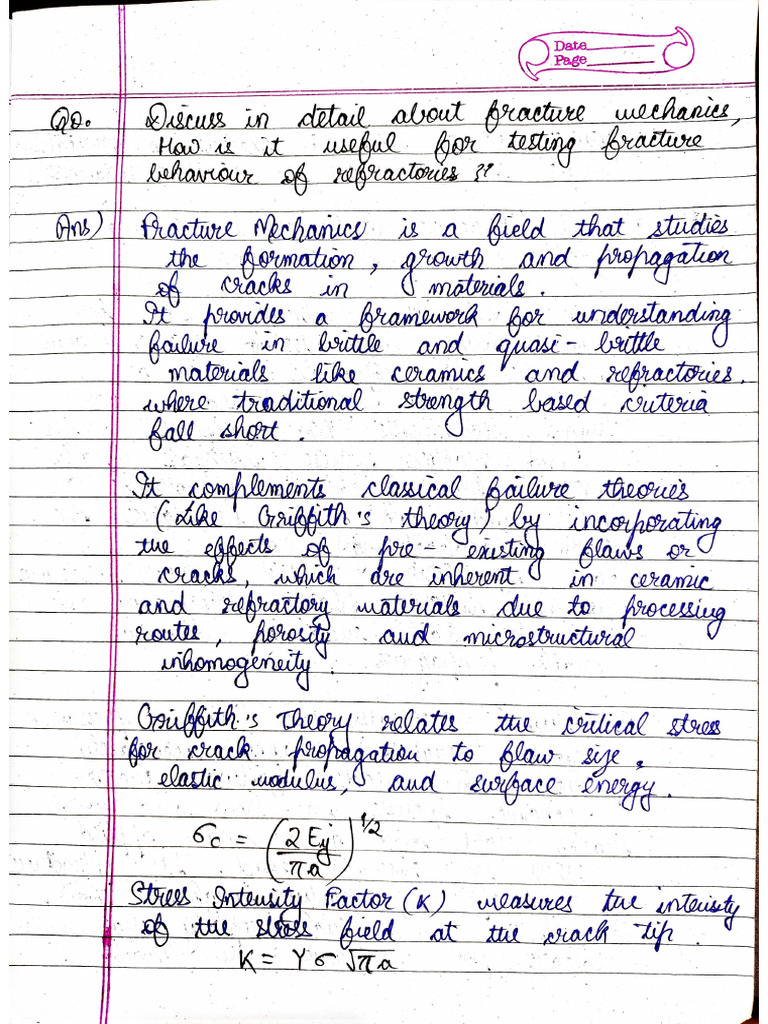 Date
Page
Q0. Discuss in detail about fracture mechanics,
How is it useful for testing fracture
behaviour of refractories ??
Ans) Fracture Mechanics is a field that studies
the formation, growth and propagation
of cracks in materials.
It provides a framework for understanding
failure in brittle and quasi-brittle
materials like ceramics and refractories.
where traditional strength based criteria
fall short.
It complements classical failure theories
(Like Griffith's theory) by incorporating
the effects of pre-existing flaws or
cracks, which are inherent in ceramic
and refractory materials due to processing
routes, porosity and microstructural
inhomogeneity.
Griffith's Theory relates the critical stress
for crack propagation to flaw size,
elastic modulus, and surface energy.
σc = (2Eγ/πa)^1/2
Stress Intensity Factor (K) measures the intensity
of the stress field at the crack tip.
K = Yσ√πa